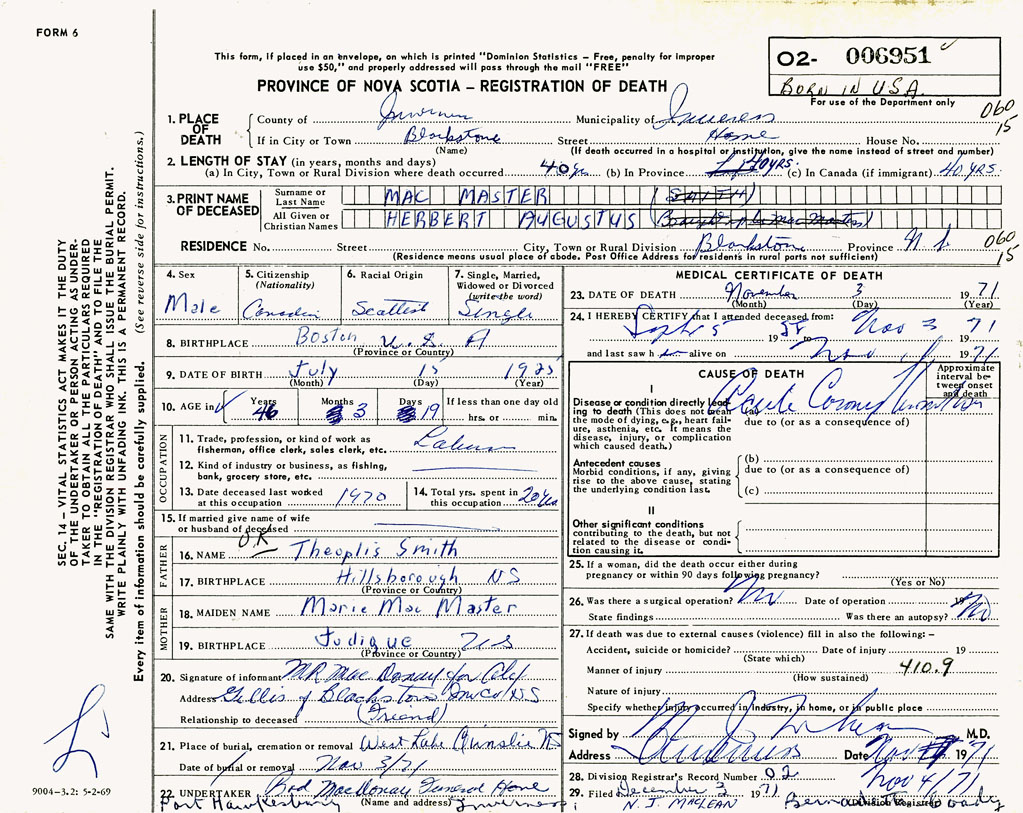 FORM 6
This form, if placed in an envelope, on which is printed "Dominion Statistics – Free, penalty for improper
use $50," and properly addressed will pass through the mail "FREE"
O2- 006951
BORN IN USA.
For use of the Department only
PROVINCE OF NOVA SCOTIA – REGISTRATION OF DEATH
060
15
1. PLACE OF DEATH
County of Municipality of Inverness
If in City or Town Blackstone Street Home House No.
(Name) (If death occurred in a hospital or institution, give the name instead of street and number)
2. LENGTH OF STAY (in years, months and days)
(a) In City, Town or Rural Division where death occurred 40 yrs (b) In Province 40 YRS. (c) In Canada (if immigrant) 40 YRS.
3. PRINT NAME OF DECEASED
Surname or Last Name MAC MASTER (SMITH)
All Given or Christian Names HERBERT AUGUSTUS
RESIDENCE No. Street City, Town or Rural Division Blackstone Province N S
060
15
(Residence means usual place of abode. Post Office Address for residents in rural parts not sufficient)
4. Sex Male
5. Citizenship (Nationality) Canadian
6. Racial Origin Scottish
7. Single, Married, Widowed or Divorced (write the word) Single
8. BIRTHPLACE Boston U. S. A
(Province or Country)
9. DATE OF BIRTH July 15 1925
(Month) (Day) (Year)
10. AGE in Years 46 Months 3 Days 19 If less than one day old
hrs. or min.
OCCUPATION
11. Trade, profession, or kind of work as
fisherman, office clerk, sales clerk, etc. Laborer
12. Kind of industry or business, as fishing,
bank, grocery store, etc.
13. Date deceased last worked at this occupation 1970
14. Total yrs. spent in this occupation 20 yrs
15. If married give name of wife
or husband of deceased
O.K
FATHER
16. NAME Theoplis Smith
17. BIRTHPLACE Hillsborough NS
(Province or Country)
MOTHER
18. MAIDEN NAME Marie Mac Master
19. BIRTHPLACE Judique NS
(Province or Country)
20. Signature of informant
Address Gillis of Blackstone NS
Relationship to deceased (Friend)
21. Place of burial, cremation or removal West Lake Ainslie NS
Date of burial or removal Nov 3/71
22. UNDERTAKER Funeral Home
Port Hawkesbury (Name and address)
MEDICAL CERTIFICATE OF DEATH
23. DATE OF DEATH November 3 1971
(Month) (Day) (Year)
24. I HEREBY CERTIFY that I attended deceased from:
Sept 5 19 58 to Nov 3 71
and last saw h im alive on Nov 1971
CAUSE OF DEATH
Approximate interval between onset and death
I
Disease or condition directly leading to death (This does not mean
the mode of dying, e.g., heart failure, asthenia, etc. It means the
disease, injury, or complication
which caused death.)
(a) Acute Coronary Thrombosis
due to (or as a consequence of)
Antecedent causes
Morbid conditions, if any, giving
rise to the above cause, stating
the underlying condition last.
(b)
due to (or as a consequence of)
(c)
II
Other significant conditions
contributing to the death, but not
related to the disease or condition causing it.
25. If a woman, did the death occur either during
pregnancy or within 90 days following pregnancy?
(Yes or No)
26. Was there a surgical operation? No Date of operation 19
State findings Was there an autopsy? No
27. If death was due to external causes (violence) fill in also the following:–
Accident, suicide or homicide? Date of injury 19
(State which)
Manner of injury 410.9
(How sustained)
Nature of injury
Specify whether injury occurred in industry, in home, or in public place
Signed by M.D.
Address Date Nov 1971
28. Division Registrar's Record Number 02 Nov 4/71
29. Filed December 3 1971
N. J. MACLEAN
(Division Registrar)
SEC. 14 – VITAL STATISTICS ACT MAKES IT THE DUTY
OF THE UNDERTAKER OR PERSON ACTING AS UNDER-
TAKER TO OBTAIN ALL THE PARTICULARS REQUIRED
IN THE "REGISTRATION OF DEATH" AND TO FILE THE
SAME WITH THE DIVISION REGISTRAR WHO SHALL ISSUE THE BURIAL PERMIT.
WRITE PLAINLY WITH UNFADING INK. THIS IS A PERMANENT RECORD.
Every item of information should be carefully supplied. (See reverse side for instructions.)
9004-3.2: 5-2-69